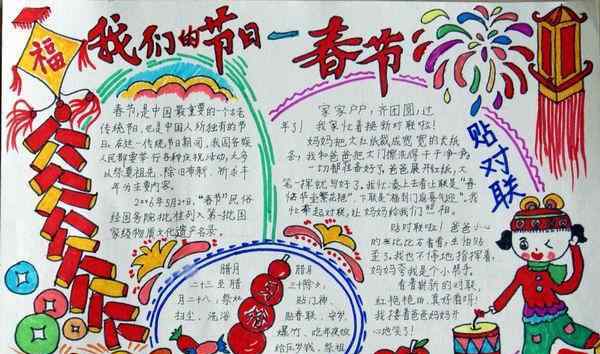 福
我们的节日一春节
春节,是中国最重要的一个古老
传统节日,也是中国人所独有的节
日。在这一传统节日期间,我国各族
人民都要举行各种庆祝活动,大多
以祭奠祖先、除旧布新、祈求丰
年为主要内容。
2006年5月20日,“春节”民俗
经国务院批准列入第一批国
家级物质文化遗产名录
家家户户,齐团圆,过
年了!我家忙着挑新对联啦!
妈妈把大红纸裁成宽宽的长纸
条,我和爸爸把大门擦洗得干干净净。
一切都准备好了,爸爸展开红纸,大
笔一挥就写好了。我忙凑上去看上联是“春
我忙拿起对联,让妈妈和我们一起
贴对联
贴对联啦!爸爸小心
妈妈夸我是个小帮手。
看着崭新的对联,
红艳艳的,真好看呀!
我搂着爸爸妈妈开
心地笑了!
腊月
二十三至腊
月二十八,祭灶
扫尘、洗浴
腊月
三十除夕,
贴门神、
贴春联、守岁、
爆竹、吃年夜饭
给压岁钱、祭祖